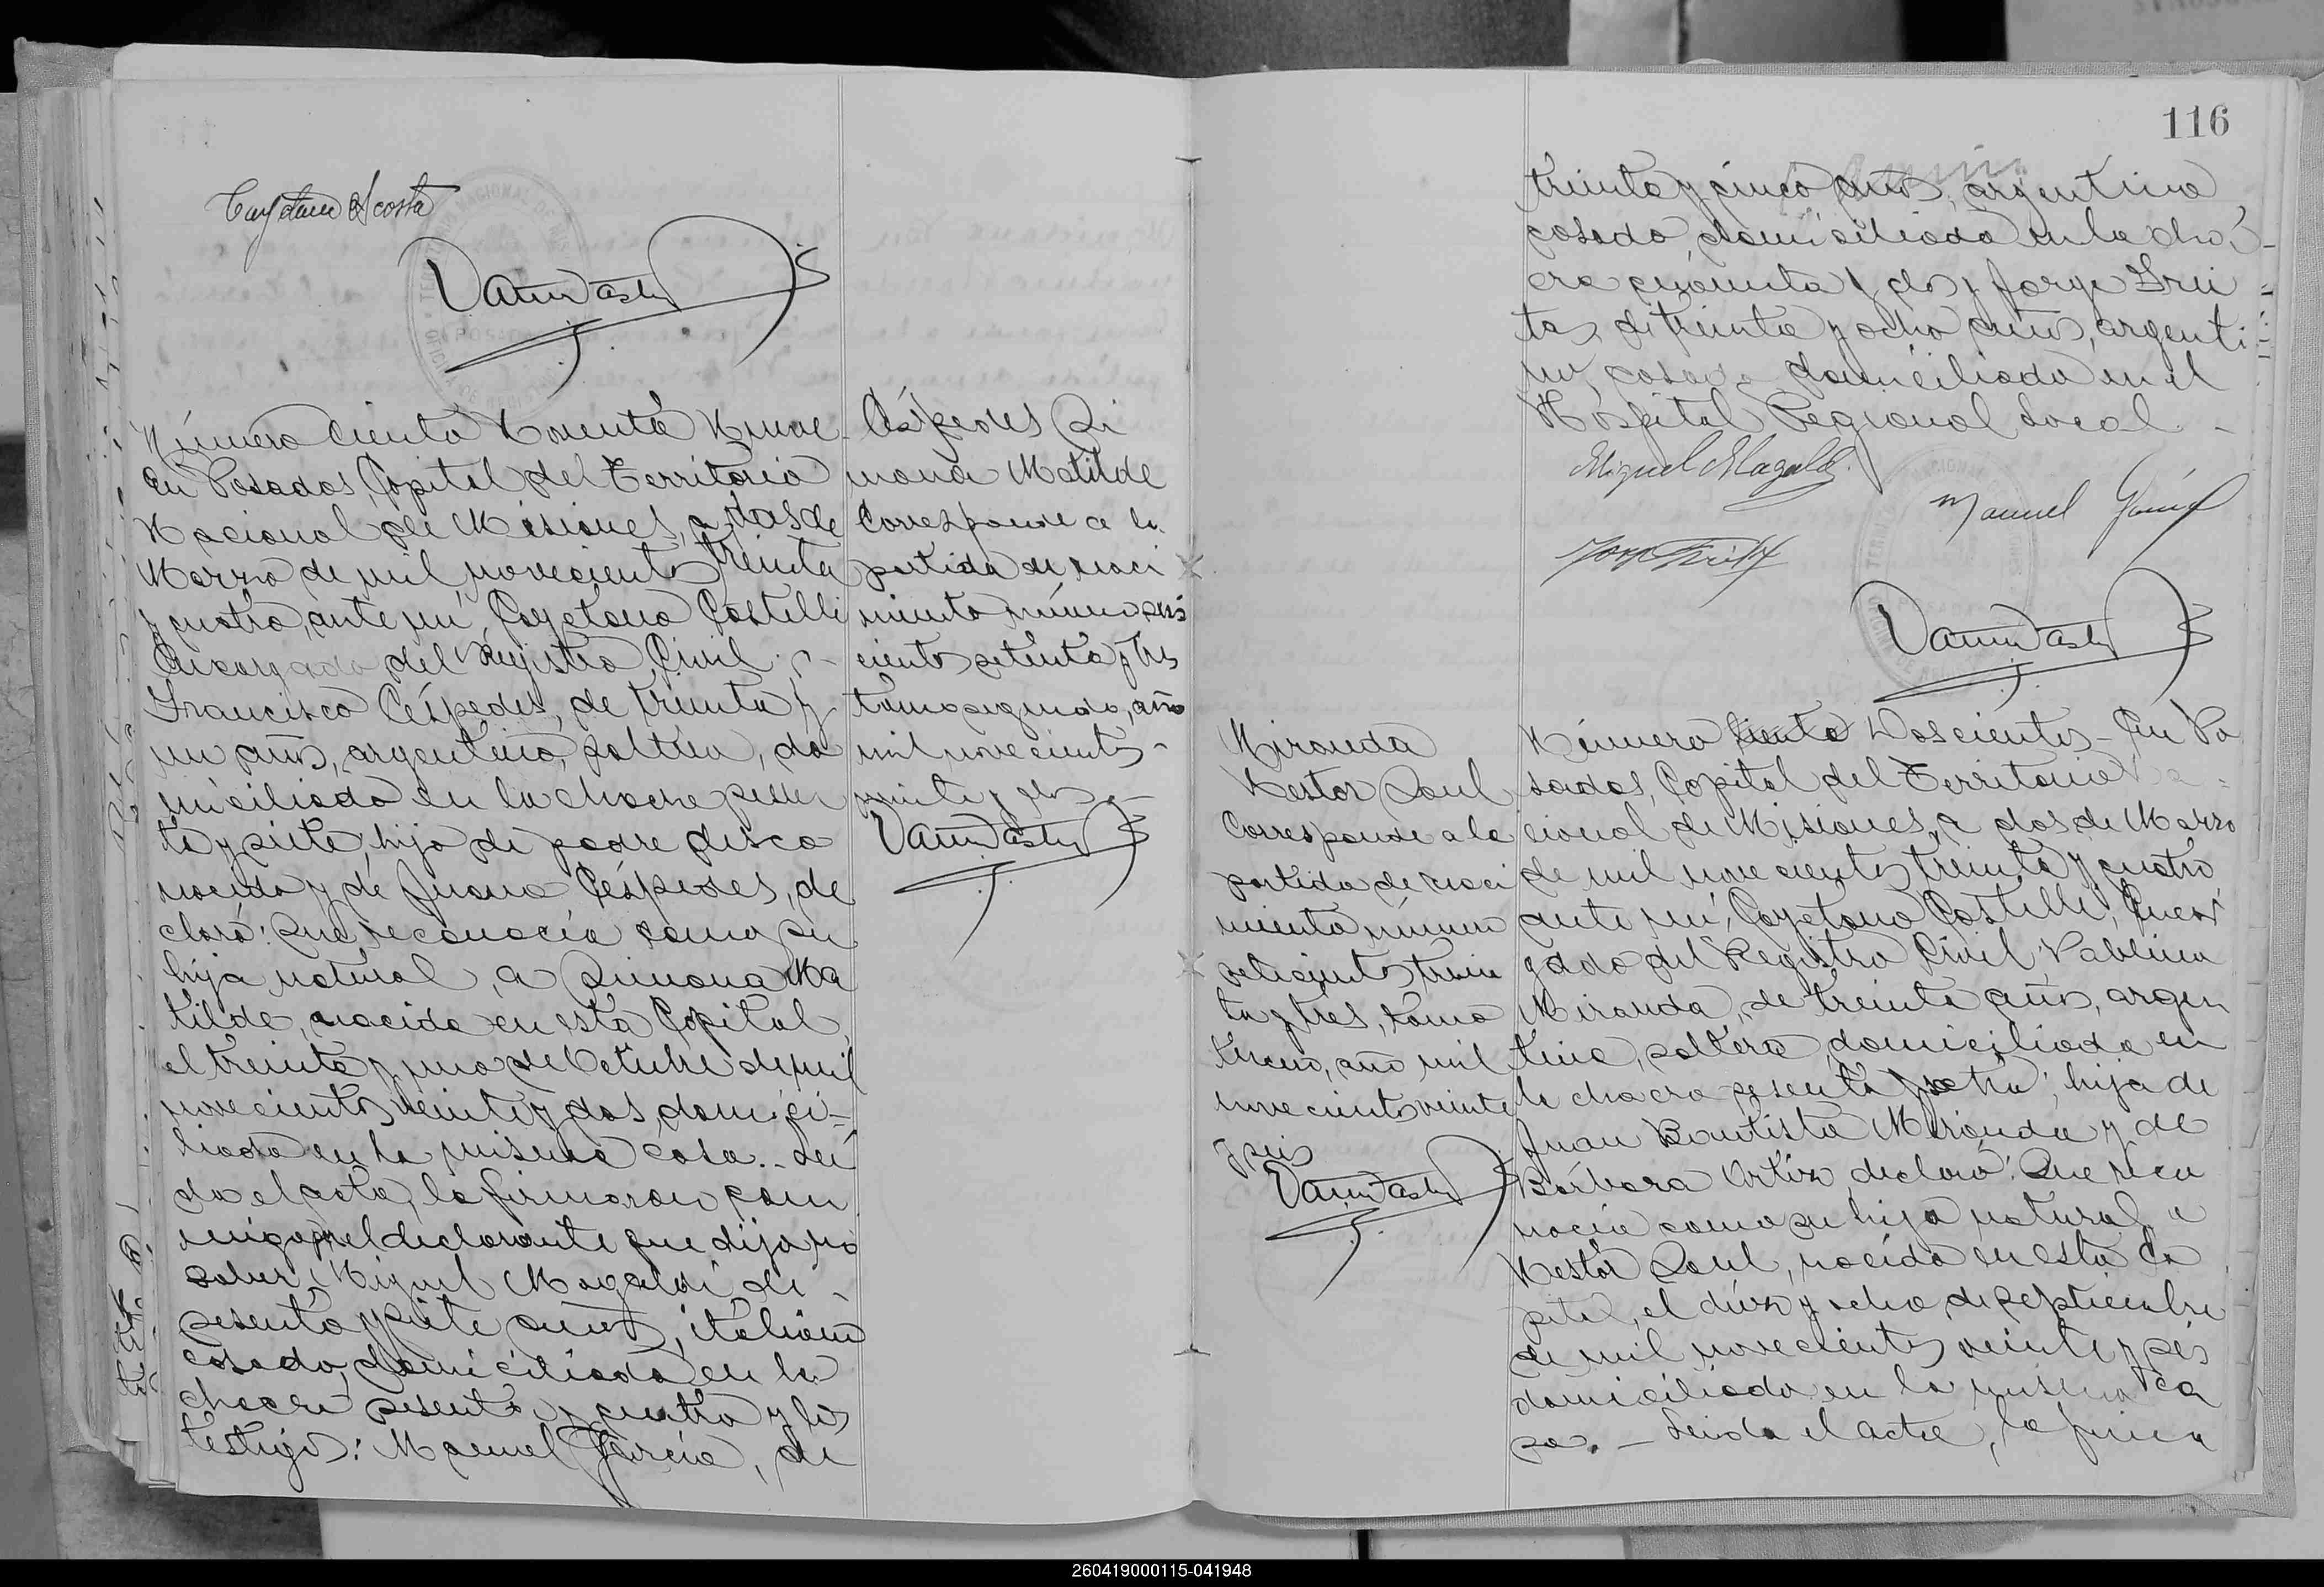 Cayetano Acosta
Número Ciento Noventa Nueve
En Posadas, Capital del Territorio
Nacional de Misiones, a dos de
Marzo de mil novecientos treinta
y cuatro, ante mí, Cayetano Castelli
Encargado del Registro Civil;
Francisco Céspedes, de treinta y
un años, argentino, soltero, do
miciliado en la chacra sesen
ta y siete, hijo de padre desco
nocido y de Juana Céspedes, de
claró: Que reconocía como su
hija natural, a Ramona Ma
tilde, nacida en esta Capital
el treinta y uno de Octubre de mil
novecientos veinte y dos, domici-
liada en la misma casa.- Leí
da el acta, la firmaron con
migo por el declarante que dijo no
saber, Miguel Magaldi, de
sesenta y siete años, italiano
casado, domiciliado en la
chacra sesenta y cuatro y los
testigos: Manuel García, de
Céspedes Ra
mona Matilde
Corresponde a la
partida de naci
miento número seis
cientos setenta y tres
tomo segundo, año
mil novecientos
veinte y dos
116
treinta y cinco años, argentino
casado, domiciliado en la chá-
cra cincuenta y dos y Jorge Frei
tas, de treinta y ocho años, argenti
no, casado domiciliado en el
Hospital Regional local.-
Miguel Magaldi
Manuel García
Miranda
Nestor Raul
Corresponde a la
partida de naci
miento número
setecientos trein
ta y tres, tomo
tercero, año mil
novecientos veinte
y seis
Número Ciento Doscientos - En Po
sadas, Capital del Territorio Na-
cional de Misiones, a dos de Marzo
de mil novecientos treinta y cuatro
ante mí, Cayetano Castelli, Encar
gado del Registro Civil: Pablina
Miranda, de treinta años, argen
tina, soltera, domiciliada en
la chacra sesenta y cuatro; hija de
Juan Bautista Miranda y de
Bárbara Ortiz declaró: Que reco
nocía como su hijo natural, a
Nestor Raul, nacido en esta Ca
pital, el diez y ocho de septiembre
de mil novecientos veinte y seis
domiciliado en la misma ca
sa.- Leida el acta, la firma
260419000115-041948